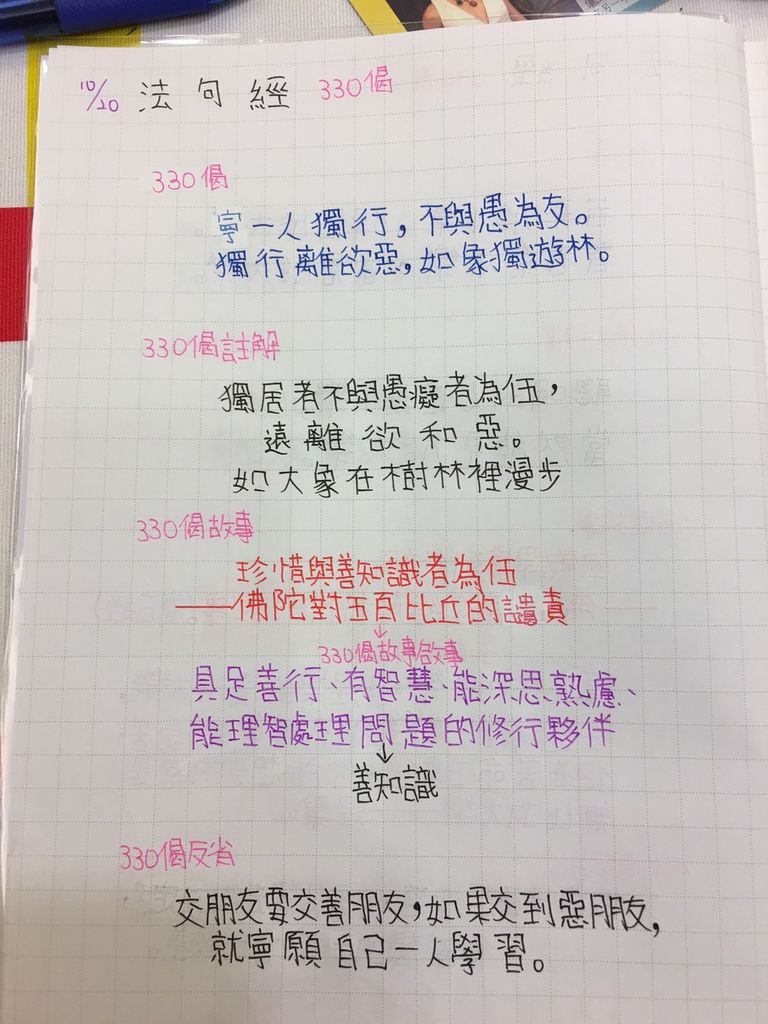 10/20 法句經 330偈
330偈
寧一人獨行，不與愚為友。
獨行離欲惡，如象獨遊林。
330偈註解
獨居者不與愚癡者為伍，
遠離欲和惡。
如大象在樹林裡漫步
330偈故事
珍惜與善知識者為伍
——佛陀對五百比丘的譴責
↓
330偈故事啟事
具足善行、有智慧、能深思熟慮、
能理智處理問題的修行夥伴
↓
善知識
330偈反省
交朋友要交善朋友，如果交到惡朋友，
就寧願自己一人學習。